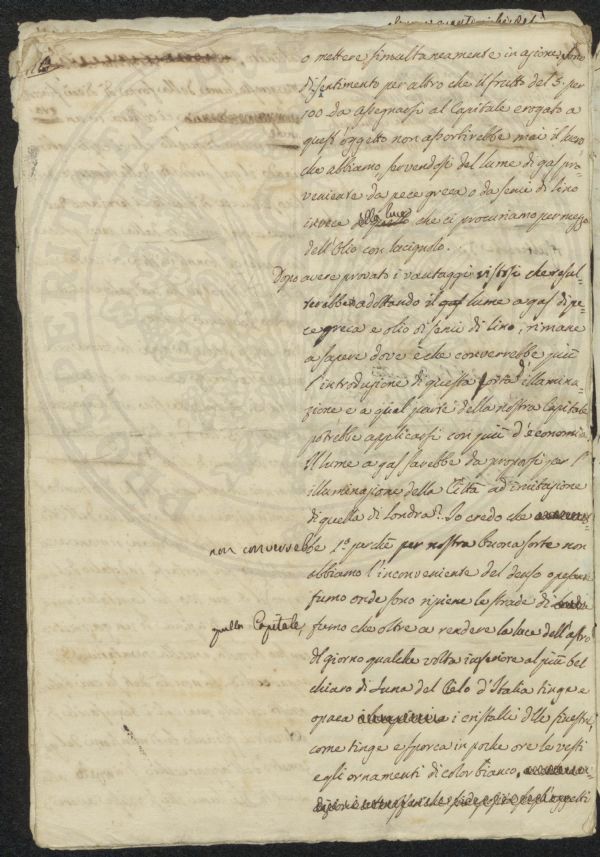 o mettere simultaneamente in azione. Sono
di sentimento per altro che il frutto del 5. per
100 da assegnarsi al Capitale erogato a
quest'oggetto non assortirebbe mai il lucro
che abbiamo, servendosi del lume di gas pro-
veniente da pece greca o da semi di lino
invece alla luce che ci procuriamo per mezzo
dell'Olio con lucignolo.
Dopo avere provato i vantaggi vistosi che resul-
terebbero adottando il lume a gas di pe-
ce greca e olio di semi di lino, rimane
a sapere dove è che converrebbe più
l'introduzione di questa sorta d'illumina-
zione e a qual parte della nostra Capitale
potrebbe applicarsi con più d'economia.
Il lume a gas sarebbe da proporsi per l'
illuminazione della Città ad imitazione
di quella di Londra? Io credo che
non converrebbe 1.º perchè per nostra buona sorte non
abbiamo l'inconveniente del denso opaco
fumo onde sono ripiene le strade di
quella Capitale,
fumo che oltre a rendere la luce dell'astro
del giorno qualche volta inferiore al più bel
chiaro di Luna del Cielo d'Italia tinge e
opaca i cristalli delle finestre,
come tinge e sporca in poche ore le vesti
e gli ornamenti di color bianco,